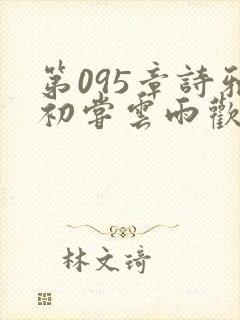 第095章詩雅
初嘗雲雨歡
林文琦